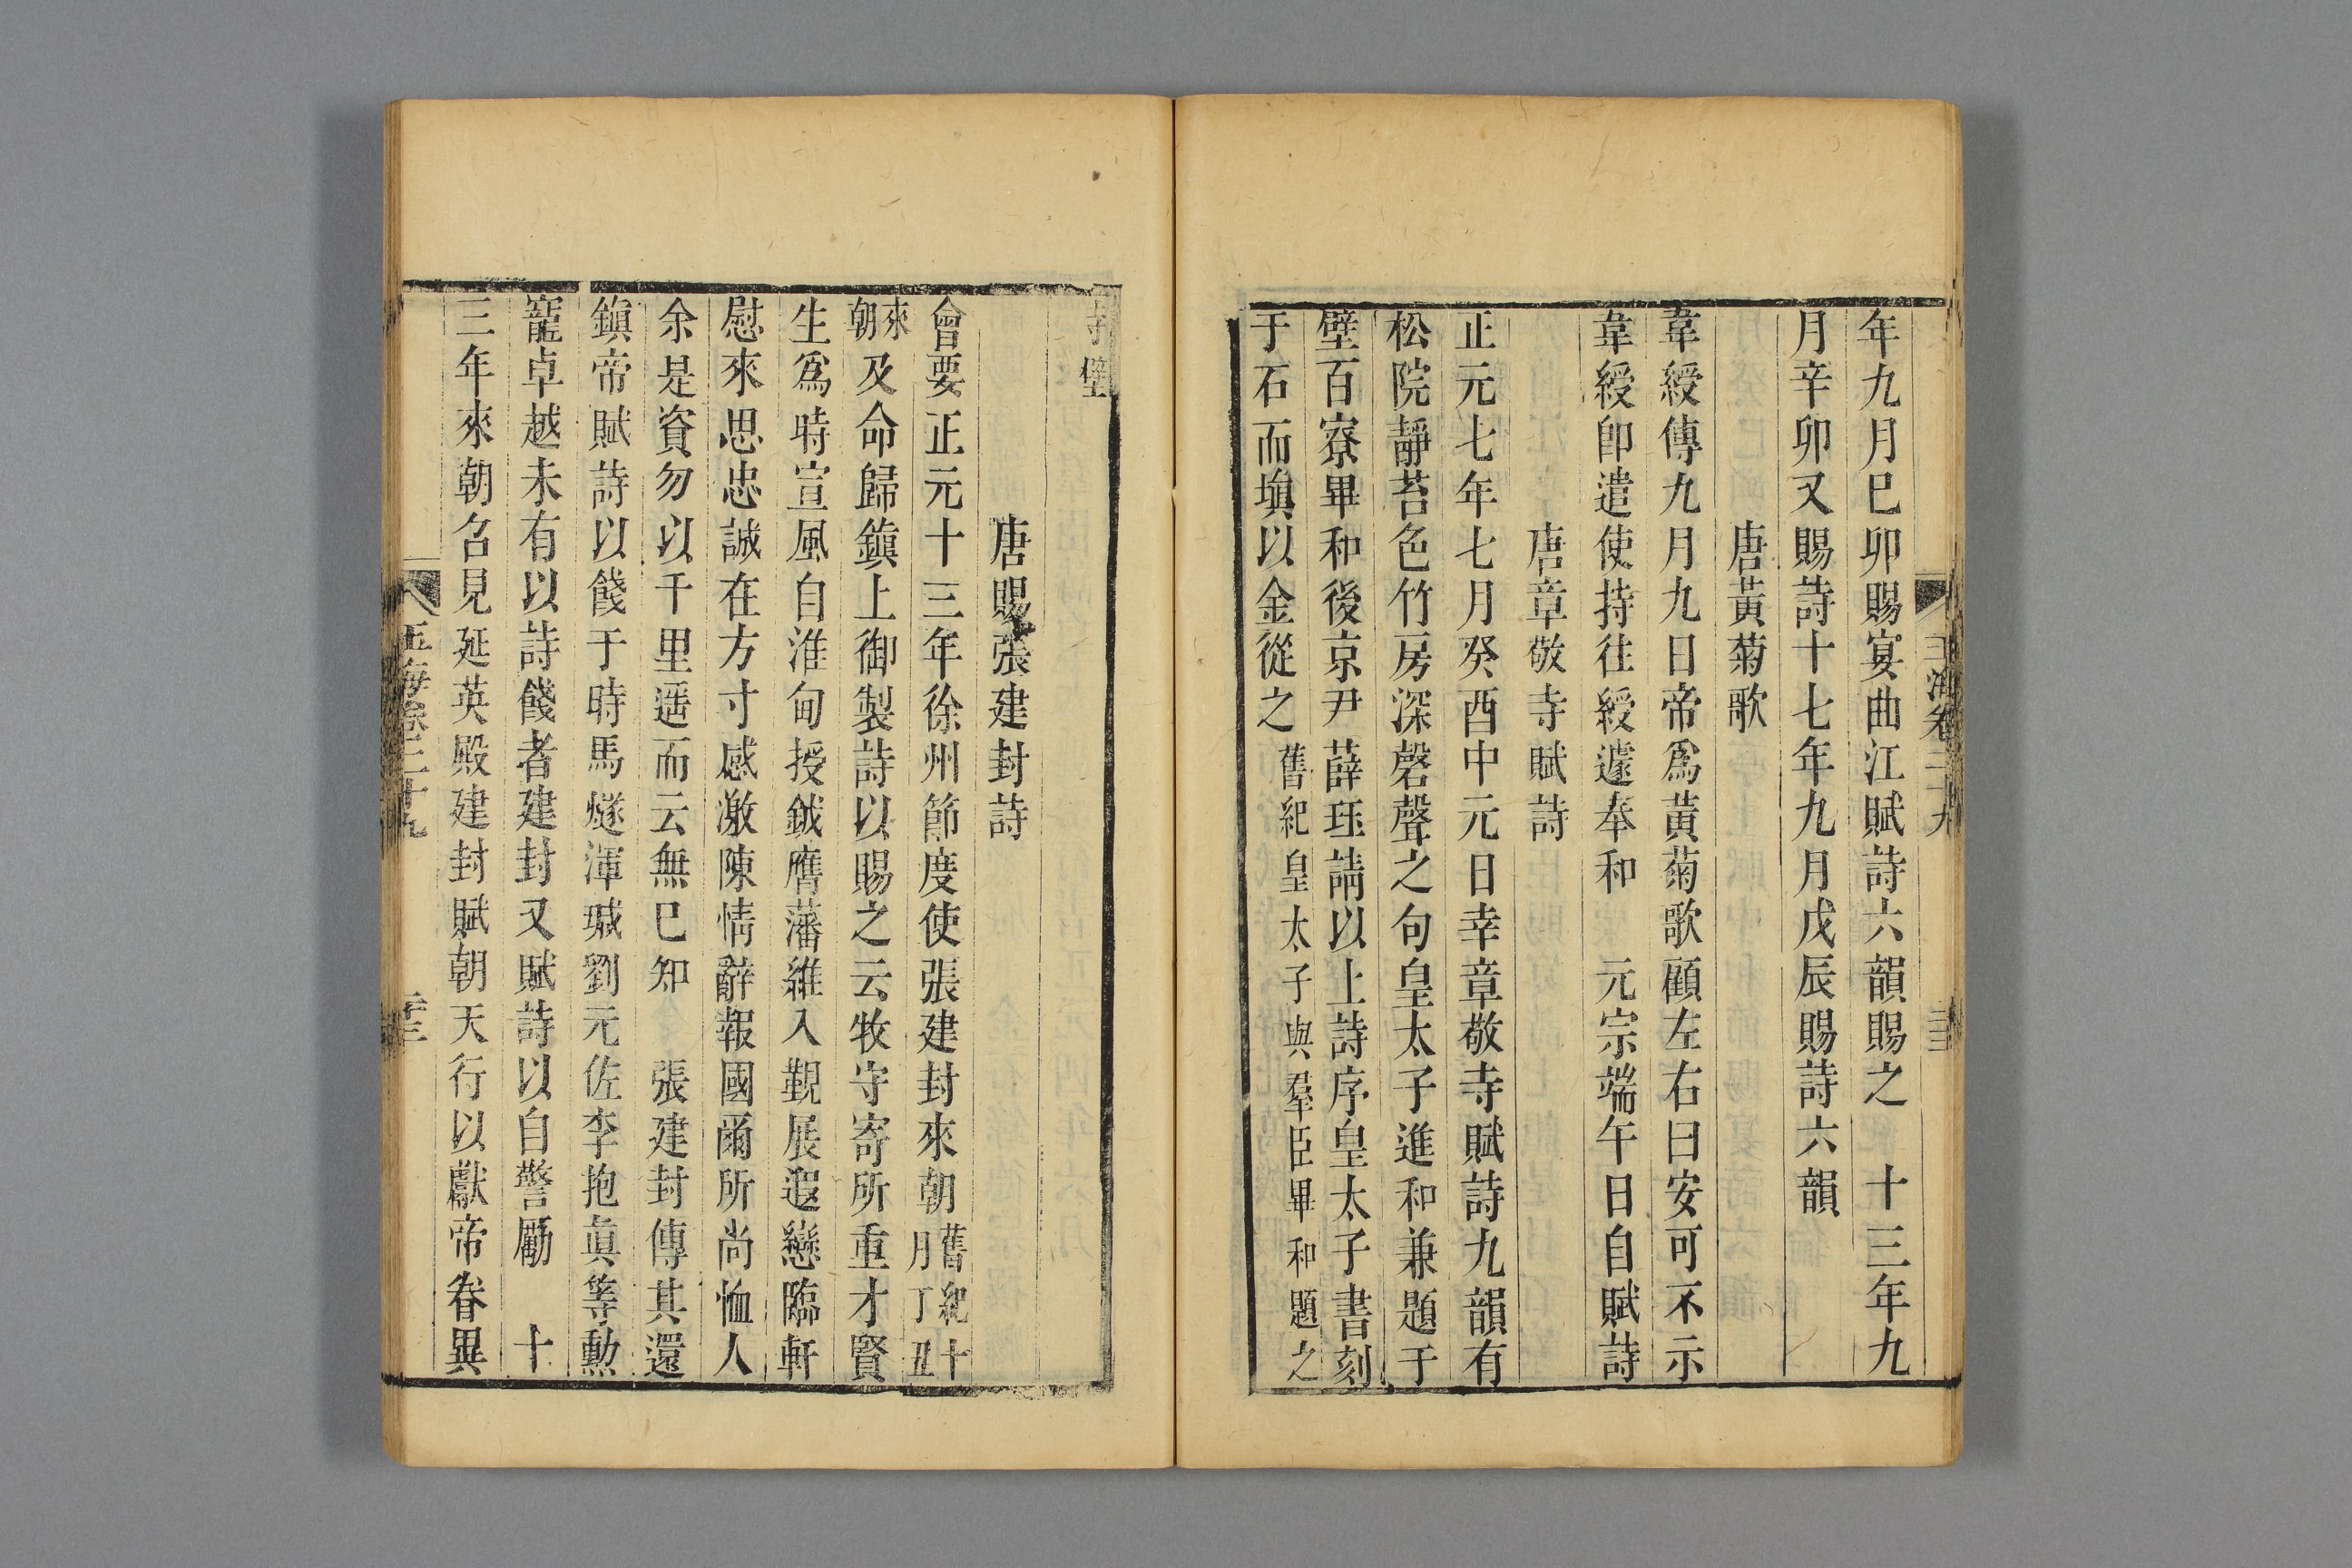 玉海卷二十九
年九月巳卯賜宴曲江賦詩六韻賜之　十三年九
月辛卯又賜詩十七年九月戊辰賜詩六韻
唐黃菊歌
韋綬傳九月九日帝爲黃菊歌顧左右曰安可不示
韋綬卽遣使持往綬遽奉和　元宗端午日自賦詩
唐章敬寺賦詩
正元七年七月癸酉中元日幸章敬寺賦詩九韻有
松院靜苔色竹房深磬聲之句皇太子進和兼題于
壁百寮畢和後京尹薛珏請以上詩序皇太子書刻
于石而塡以金從之舊紀皇太子與羣臣畢和題之
寺壁
唐賜張建封詩
會要正元十三年徐州節度使張建封來朝舊紀十月丁丑
來朝及命歸鎭上御製詩以賜之云牧守寄所重才賢
生爲時宣風自淮甸授鉞膺藩維入覲展遐戀臨軒
慰來思忠誠在方寸感激陳情辭報國爾所尚恤人
余是資勿以千里遥而云無巳知　張建封傳其還
鎭帝賦詩以餞于時馬燧渾瑊劉元佐李抱眞等勲
寵卓越未有以詩餞者建封又賦詩以自警勵　十
三年來朝名見延英殿建封賦朝天行以獻帝眷異
玉海卷二十九